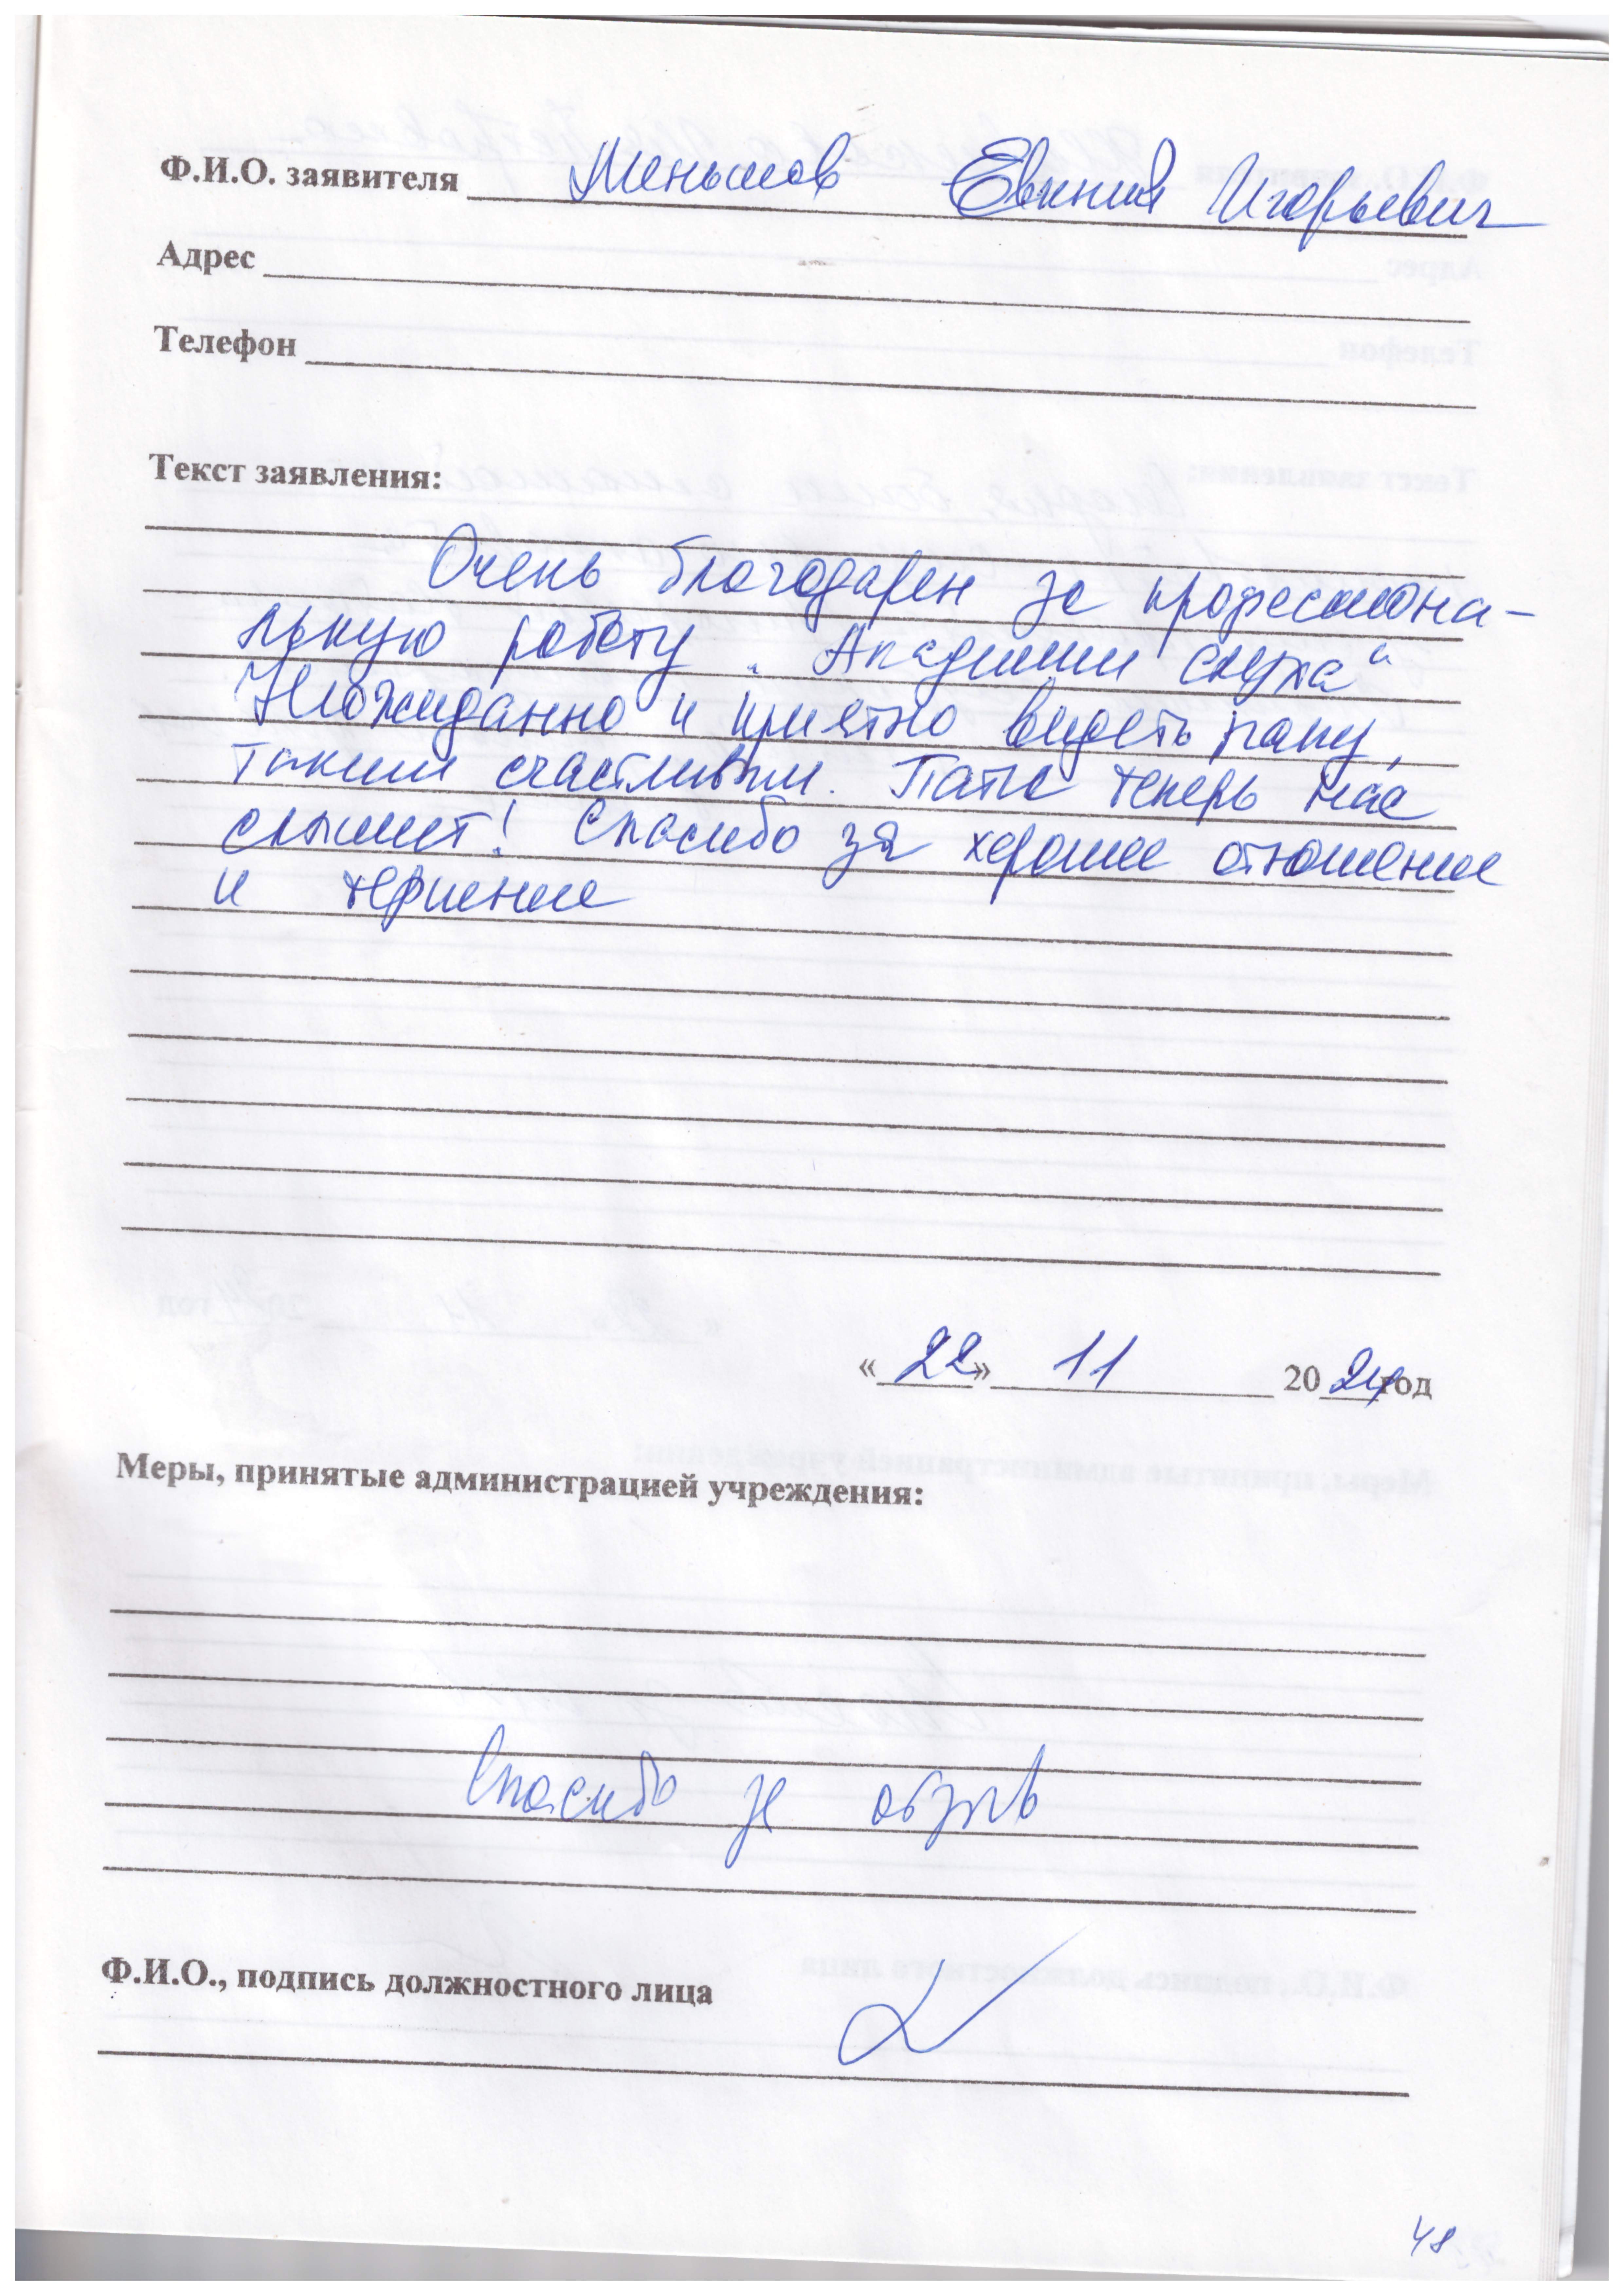 Ф.И.О. заявителя Меньшов Евгений Игорьевич
Адрес
Телефон
Текст заявления:
Очень благодарен за профессиона-
льную работу "Академии слуха"
Неожиданно и приятно видеть папу,
таким счастливым. Папа теперь нас
слышит! Спасибо за хорошее отношение
и терпение
«22» 11 2024 год
Меры, принятые администрацией учреждения:
Спасибо за отзыв
Ф.И.О., подпись должностного лица
48